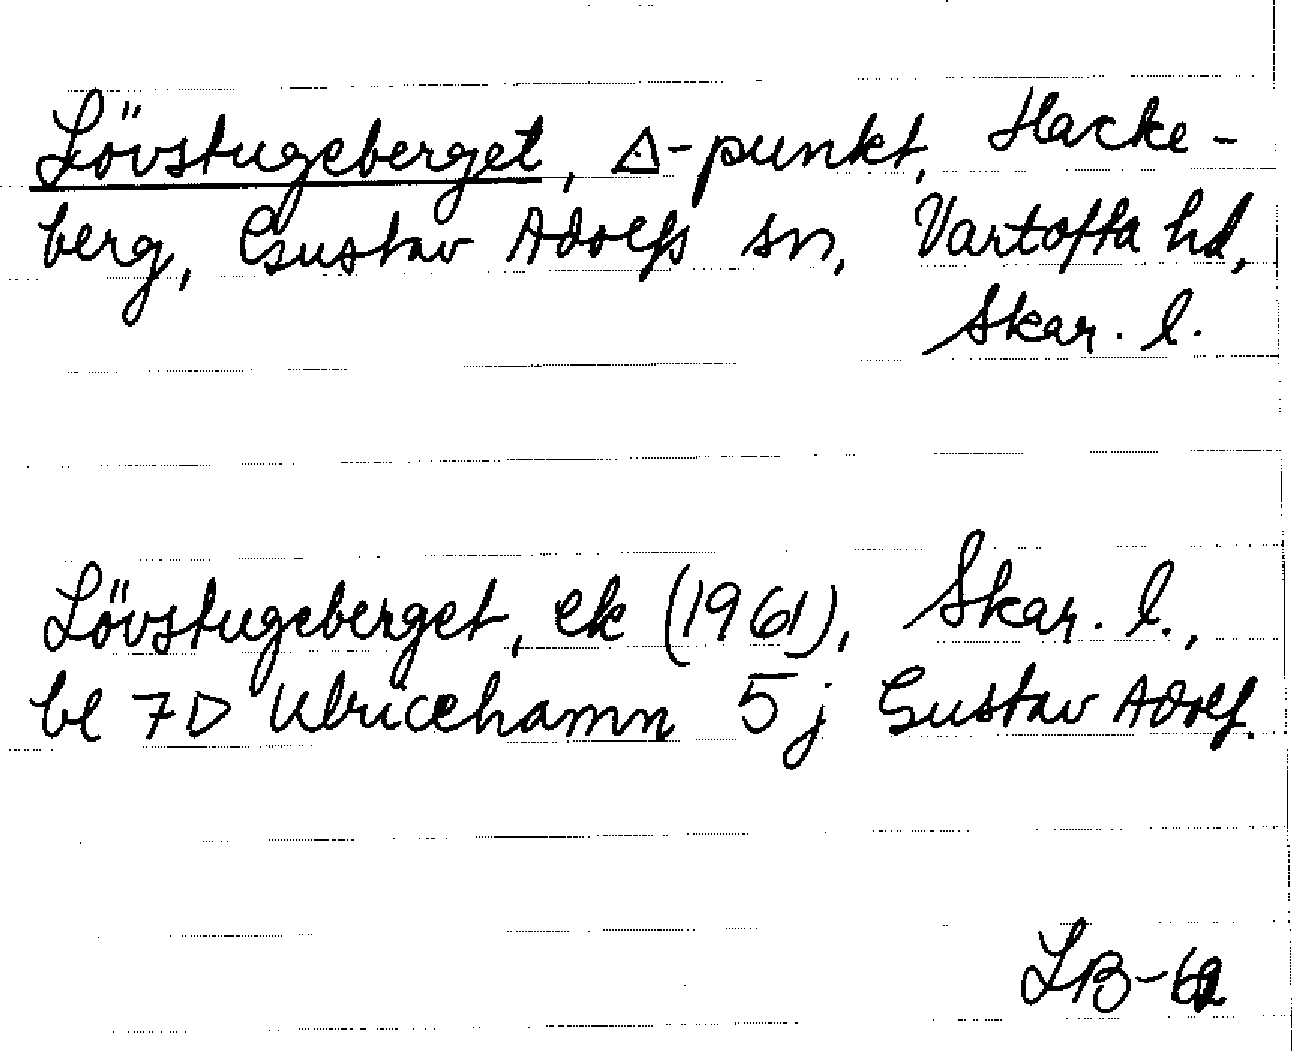 Lövstugeberget, △-punkt, Hacke-
berg, Gustav Adolfs sn, Vartofta hd,
Skar. l.
Lövstugeberget, ek (1961), Skar. l.,
bl 7D Ulricehamn 5j Gustav Adolf.
LB-62